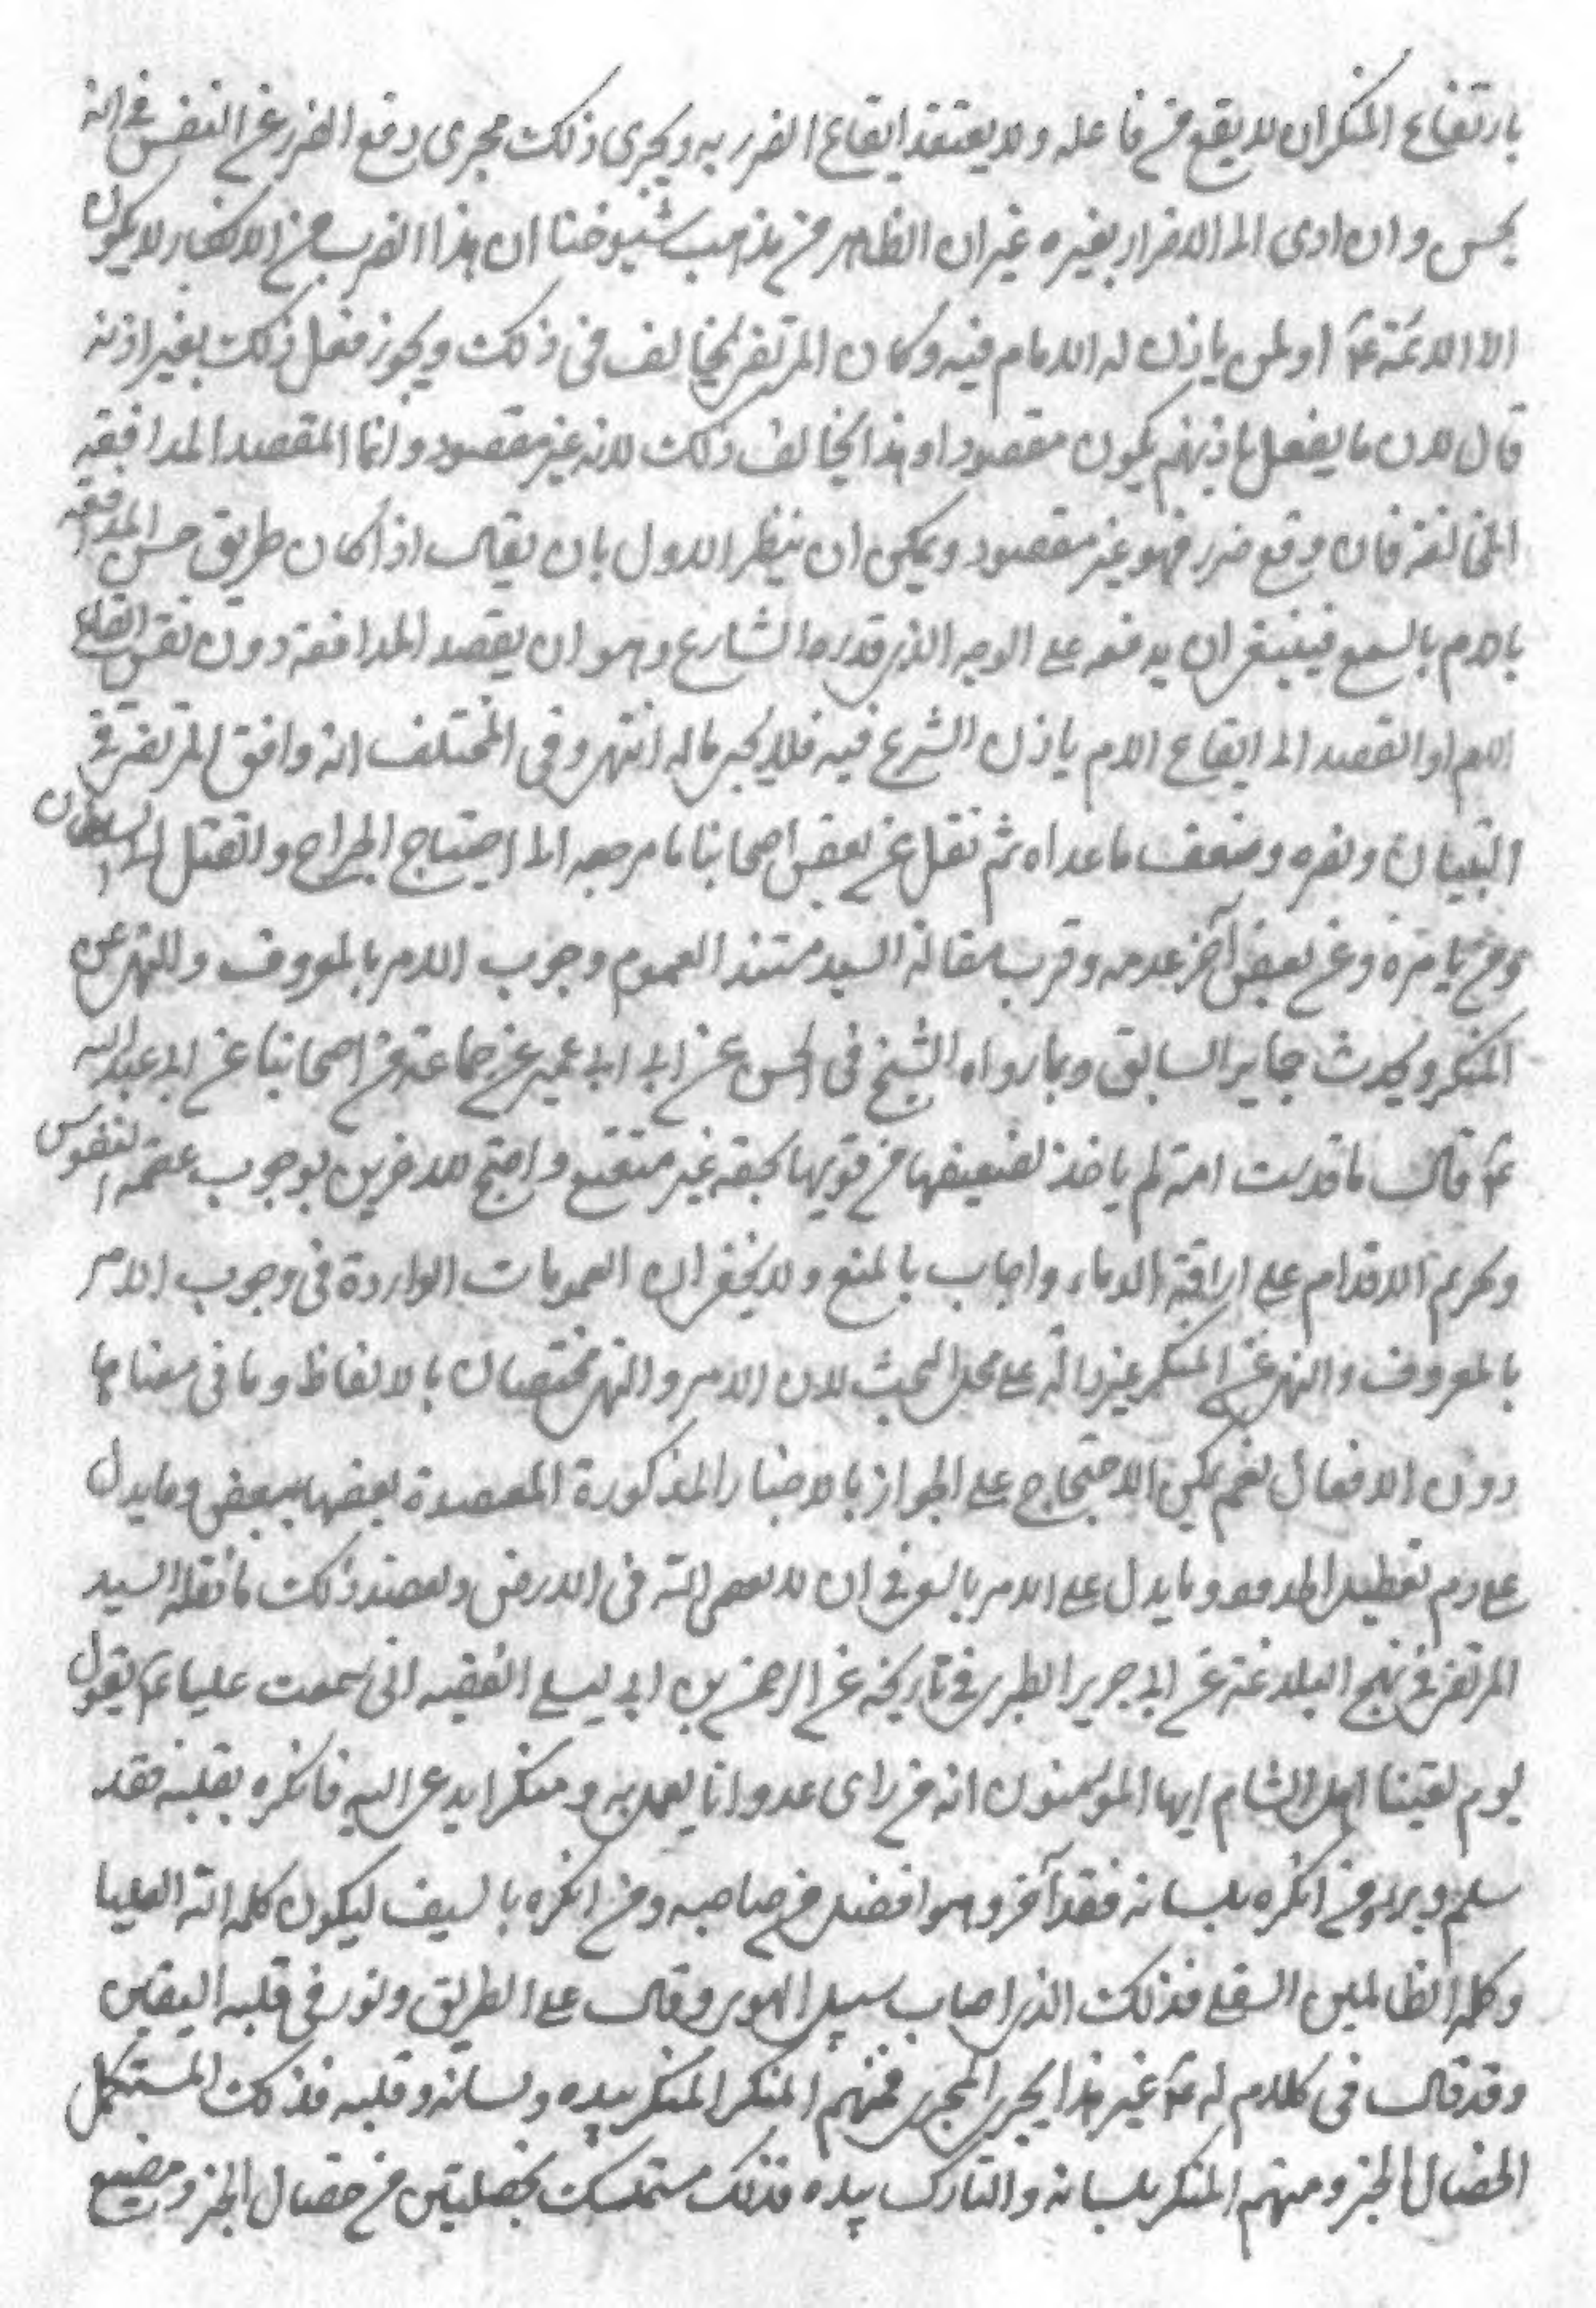 بارتفاع المنكر ان لا يقع من فاعله ولا يعتقد ايقاع الضرر به ويجرى ذلك مجرى دفع الضرر عن النفس فى انه
يحسن وان ادى الى الاضرار بغيره غير ان الظاهر من مذهب شيوخنا ان هذا الضرب من الانكار لا يكون
الا الائمة ع او لمن ياذن له الامام فيه وكان المرتضى يخالف فى ذلك ويجوز فعل ذلك بغير اذنه
قال لان ما يفعل باذنهم يكون مقصودا وهذا يخالف ذلك لانه غير مقصود وانما المقصد المدافعة
الممانعة فان وقع ضرر فهو غير مقصود ويمكن ان ينظر الاول بان يقال اذا كان طريق حسن المدافعة
بالالم بالسمع فينبغى ان يدفعه على الوجه الذى قدره الشارع وهو ان يقصد المدافعة دون نفس ايقاع
الالم او القصد الى ايقاع الالم ياذن الشرع فيه فلا يجبر ماله انتهى وفى المختلف انه وافق المرتضى فى
التبيان ونصره وضعف ما عداه ثم نقل عن بعض اصحابنا ما مرجعه الى احتياج الجراح والقتل الى السلطان
ومن يامره وعن بعض آخر عدمه وقرب مقالة السيد مستند العموم وجوب الامر بالمعروف والنهى عن
المنكر وبحديث جابر السابق وبما رواه الشيخ فى الحسن عن ابن ابى عمير عن جماعة من اصحابنا عن ابى عبد الله
ع قال ما قدست امة لم ياخذ لضعيفها من قويها بحقه غير متعتع واحتج للاخرين بوجوب عصمة النفوس
وتحريم الاقدام على اراقة الدماء واجاب بالمنع ولا يخفى ان العمومات الواردة فى وجوب الامر
بالمعروف والنهى عن المنكر غير دالة على محل البحث لان الامر والنهى مختصان بالالفاظ وما فى معناها
دون الافعال نعم يمكن الاحتجاج على الجواز بالاخبار المذكورة المعتضدة بعضها ببعض وما يدل
على وما يدل على الامر بالسوق ان لا يعصى الله فى الارض ويعضد ذلك ما نقله السيد
المرتضى فى نهج البلاغة عن ابى جرير الطبرى فى تاريخه عن الرحمن بن ابى ليلى الفقيه انى سمعت عليا ع يقول
يوم لقينا اهل الشام ايها المؤمنون انه من راى عدوانا يعمل به ومنكرا يدعى اليه فانكره بقلبه فقد
سلم وبرئ ومن انكره بلسانه فقد آجر وهو افضل من صاحبه ومن انكره بالسيف ليكون كلمة الله العليا
وكلمة الظالمين السفلى فذلك الذى اصاب سبيل الهدى وقام على الطريق ونور فى قلبه اليقين
وقد قال فى كلام له ع غير هذا يجرى المجرى فمنهم المنكر المنكر بيده ولسانه وقلبه فذلك المستكمل
الخصال الخير ومنهم المنكر بلسانه والتارك بيده فذلك متمسك بخصلتين من خصال الخير ومضيع